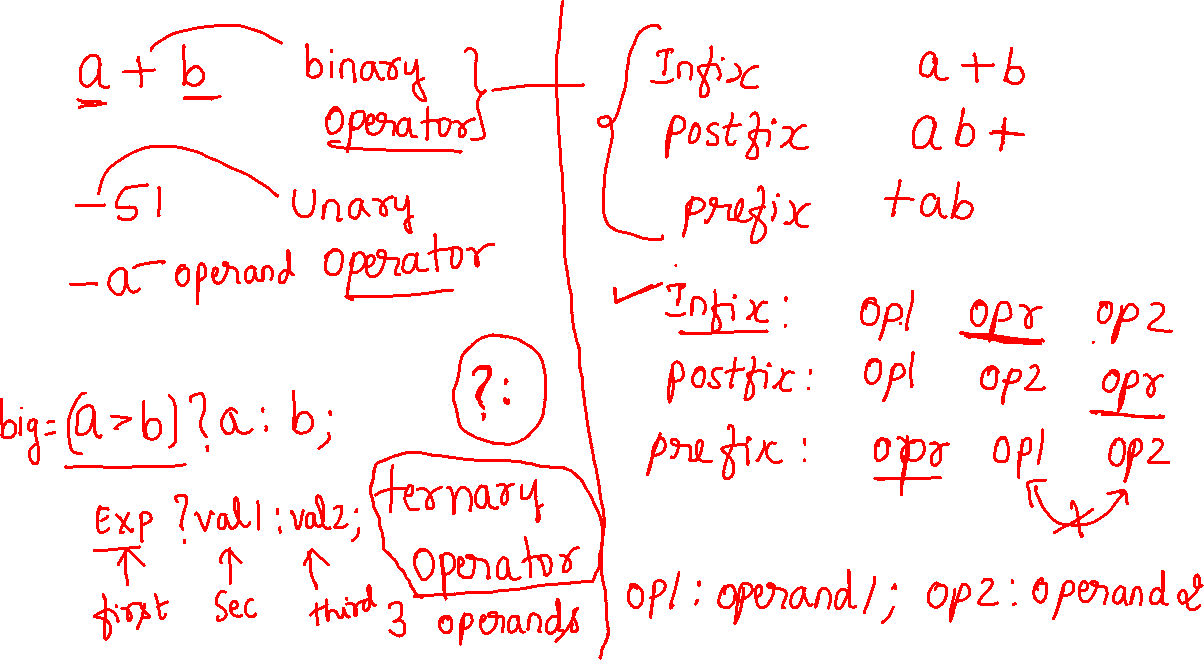 a + b binary
operator
-51 Unary
-a operand operator
?:
big=(a>b)?a:b;
Exp ?val1:val2; ternary
operator
first Sec third 3 operands
Infix a+b
postfix ab+
prefix +ab
Infix: op1 opr op2
postfix: op1 op2 opr
prefix: opr op1 op2
op1:operand1; op2:operand2